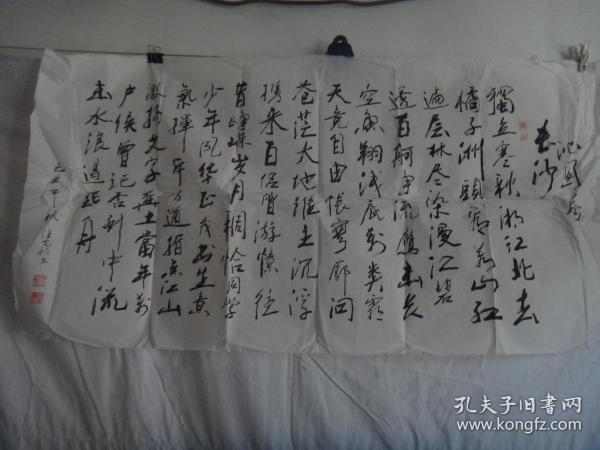 沁园春
长沙
獨立寒秋湘江北去
橘子洲頭看万山红
遍层林尽染漫江碧
透百舸争流鹰击长
空鱼翔浅底万类霜
天竞自由怅寥廓问
苍茫大地谁主沉浮
携来百侣曾游憶往
昔峥嵘岁月稠恰同学
少年风华正茂书生意
氣揮斥方遒指点江山
激扬文字粪土當年万
户侯曾记否到中流
击水浪遏飞舟
己丑年秋
孔夫子旧书网
www.kongfz.com